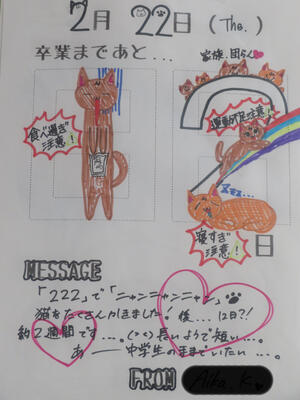 2月 22日 (The.)
卒業まであと...
家族、団らん
食べ過ぎ
注意!
運動不足注意!
Zzz...
寝すぎ
注意!
日
MESSAGE
「222」で「ニャンニャンニャン」
猫をたくさんかきました! 後...12日?!
約2週間です...。(><) 長いようで短い...。
あー 中学生のままでいたい...。
FROM Aika.K